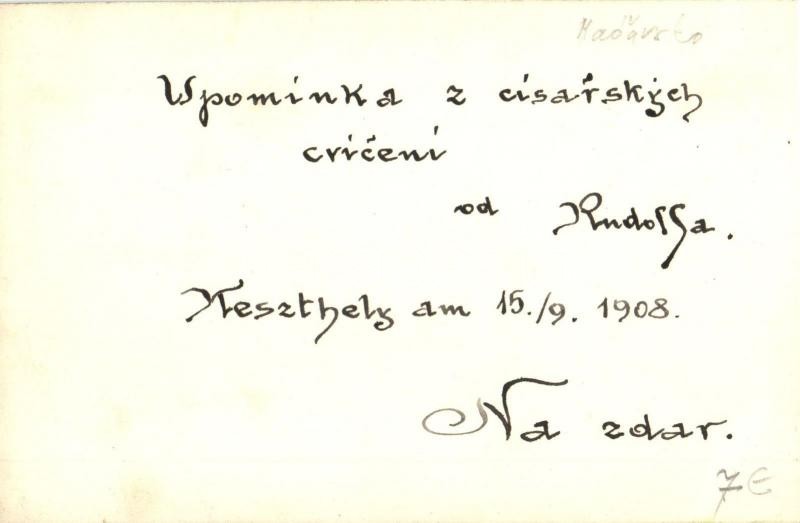 Maďarsko
Upomínka z císařských
cvičení
od Rudolfa.
Keszthely am 15./9. 1908.
Na zdar.
7 €